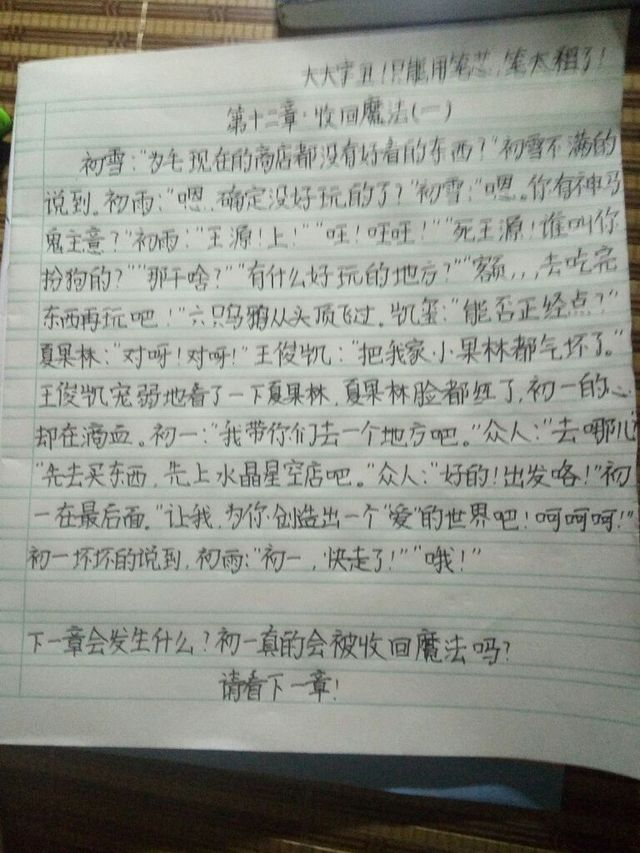 大大字丑！只能用笔芯，笔太粗了！
第十二章·收回魔法(一)
初雪：“为毛现在的商店都没有好看的东西？”初雪不满的
说到。初雨：“嗯，确定没好玩的了？”初雪：“嗯。你有神马
鬼主意？”初雨：“王源！上！”“旺！旺旺！”“死王源！谁叫你
扮狗的？”“那干啥？”“有什么好玩的地方？”“额，，，去吃完
东西再玩吧！”六只乌鸦从头顶飞过。凯玺：“能否正经点？”
夏果林：“对呀！对呀！”王俊凯：“把我家小果林都气坏了。”
王俊凯宠弱地看了一下夏果林，夏果林脸都红了，初一的心
却在滴血。初一：“我带你们去一个地方吧。”众人：“去哪儿？
“先去买东西，先上水晶星空店吧。”众人：“好的！出发咯！”初
一在最后面。“让我，为你创造出一个“爱”的世界吧！呵呵呵！”
初一坏坏的说到，初雨：“初一，快走了！”“哦！”
下一章会发生什么？初一真的会被收回魔法吗？
请看下一章！